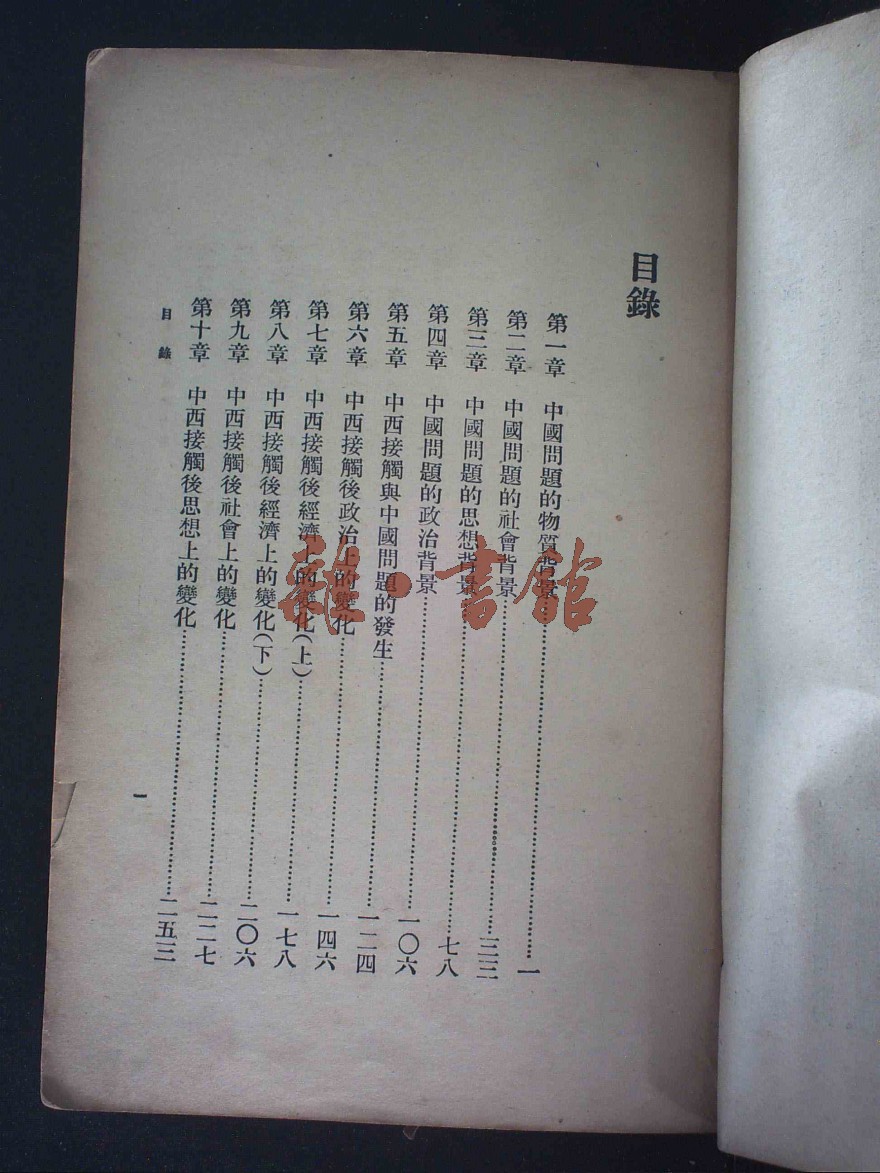 目錄
第一章 中國問題的物質背景……一
第二章 中國問題的社會背景……
第三章 中國問題的思想背景……七八
第四章 中國問題的政治背景……一〇六
第五章 中西接觸與中國問題的發生……一二四
第六章 中西接觸後政治上的變化……一四六
第七章 中西接觸後經濟上的變化(上)……一七八
第八章 中西接觸後經濟上的變化(下)……二〇六
第九章 中西接觸後社會上的變化……二二七
第十章 中西接觸後思想上的變化……二五三
目錄
一
雜·書館